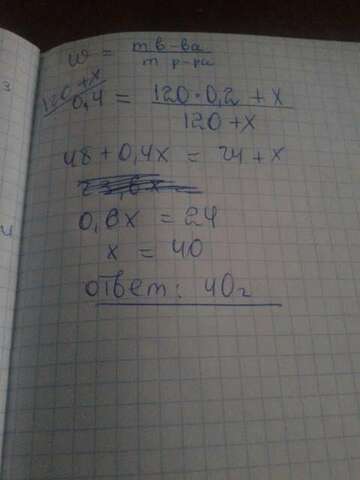 ω = m в-ва / m р-ра
120+x
0,4 = 120·0,2 + x / 120+x
48 + 0,4x = 24 + x
0,6x = 24
x = 40
ответ: 40г